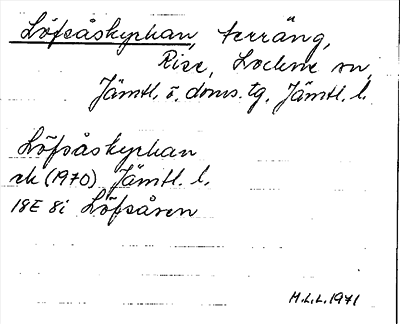 Löfsåskyrkan, terräng,
Rise, Lockne sn,
Jämtl. ö. doms. tg, Jämtl. l.
Löfsåskyrkan
ek (1970) Jämtl. l.
18E 8i Löfsåsen
M.L.L. 1971